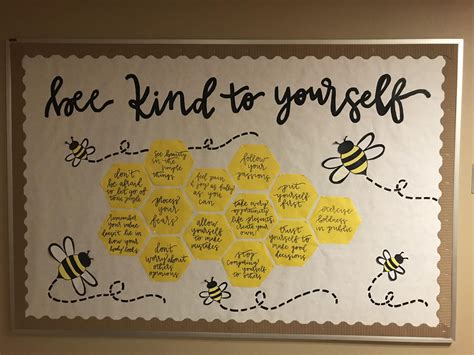 bee kind to yourself
see beauty
in the
simple
things
follow
your
passions
don't
be afraid
to let go of
toxic people
feel pain
& joy as fully
as you
can
put
yourself
first
process
your
fears
take every
opportunity
life presents
create your
own!
exercise
boldness
in public
remember
your value
doesn't lie in
how your
body looks
allow
yourself
to make
mistakes
trust
yourself to
make good
decisions
don't
worry about
others
opinions
stop
comparing
yourself
to others